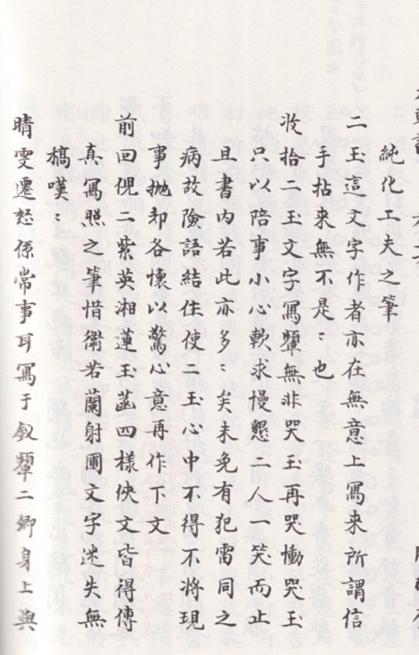 純化工夫之筆
二玉這文字作者亦在無意上寫来所謂信
手拈来無不是〻也
收拾二玉文字寫顰無非哭玉再哭慟哭玉
只以陪事小心軟求慢懇二人一笑而止
且書内若此亦多〻矣未免有犯雷同之
病故險語結住使二玉心中不得不將現
事抛却各懷以驚心意再作下文
前回倪二紫英湘蓮玉菡四様侠文皆得傳
真寫照之筆惜衛若蘭射圃文字迷失無
稿嘆〻
晴雯遷怒係常事耳寫于釵顰二卿身上與